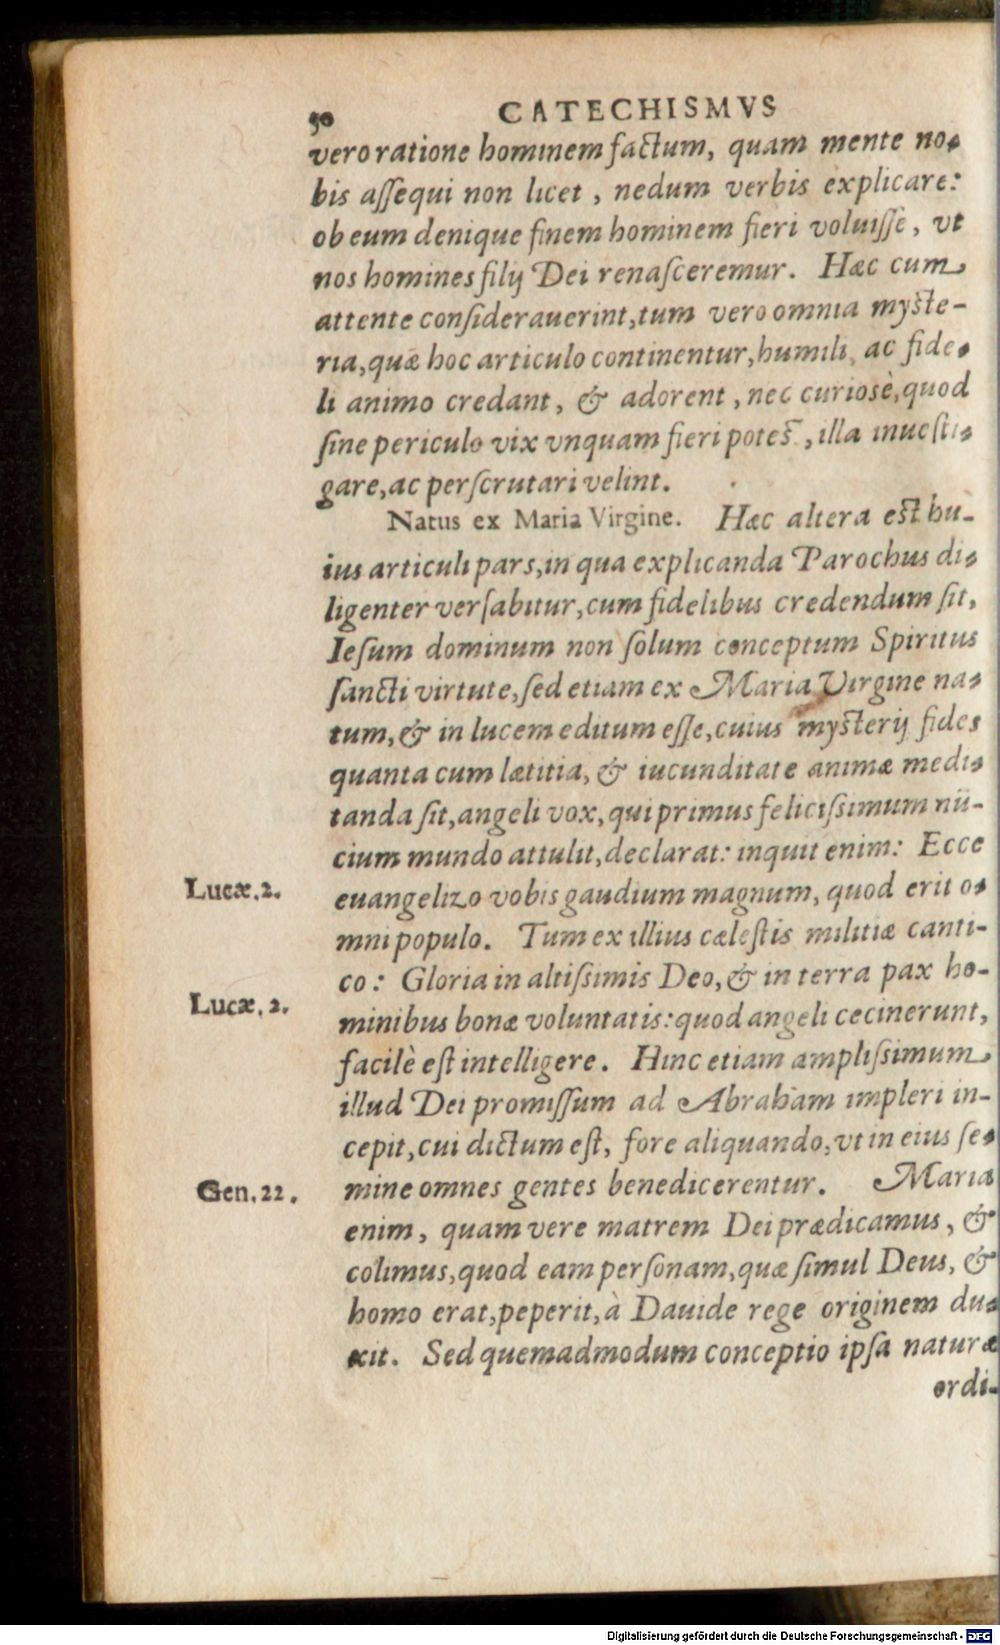 50 CATECHISMVS
vero ratione hominem factum, quam mente no-
bis aſſequi non licet, nedum verbis explicare:
ob eum denique finem hominem fieri voluiſſe, vt
nos homines filij Dei renaſceremur. Hæc cum
attente conſiderauerint, tum vero omnia myſte-
ria, quæ hoc articulo continentur, humili, ac fide-
li animo credant, & adorent, nec curiosè, quod
ſine periculo vix vnquam fieri poteſt, illa inueſti-
gare, ac perſcrutari velint.
Natus ex Maria Virgine. Hæc altera eſt hu-
ius articuli pars, in qua explicanda Parochus di-
ligenter verſabitur, cum fidelibus credendum ſit,
Ieſum dominum non ſolum conceptum Spiritus
ſancti virtute, ſed etiam ex Maria Virgine na-
tum, & in lucem editum eſſe, cuius myſterij fides
quanta cum lætitia, & iucunditate animæ medi-
tanda ſit, angeli vox, qui primus feliciſsimum nū-
cium mundo attulit, declarat: inquit enim: Ecce
Lucæ. 2. euangelizo vobis gaudium magnum, quod erit o-
mni populo. Tum ex illius cæleſtis militiæ canti-
co: Gloria in altiſsimis Deo, & in terra pax ho-
Lucæ. 2. minibus bonæ voluntatis: quod angeli cecinerunt,
facilè eſt intelligere. Hinc etiam ampliſsimum
illud Dei promiſſum ad Abraham impleri in-
cepit, cui dictum eſt, fore aliquando, vt in eius ſe-
Gen. 22. mine omnes gentes benedicerentur. Maria
enim, quam vere matrem Dei prædicamus, &
colimus, quod eam perſonam, quæ ſimul Deus, &
homo erat, peperit, à Dauide rege originem du-
xit. Sed quemadmodum conceptio ipſa naturæ
ordi-
Digitalisierung gefördert durch die Deutsche Forschungsgemeinschaft - DFG